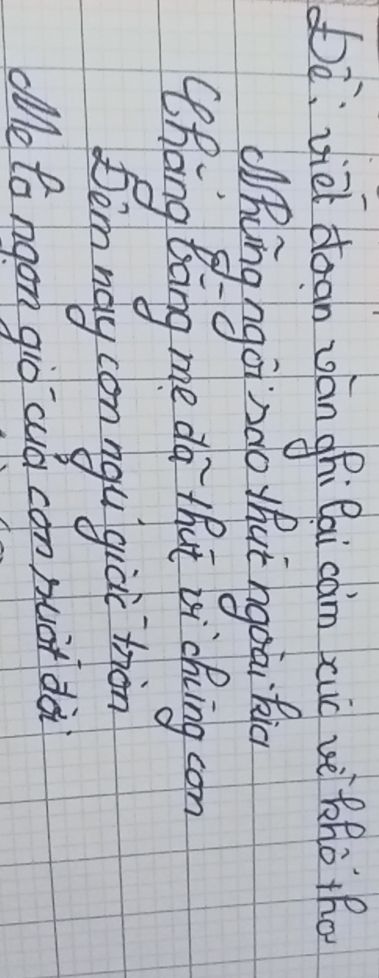 Đề: viết đoạn văn ghi lại cảm xúc về khổ thơ
Những ngôi sao thức ngoài kia
Chẳng bằng mẹ đã thức vì chúng con
Đêm nay con ngủ giấc tròn
Mẹ là ngọn gió của con suốt đời